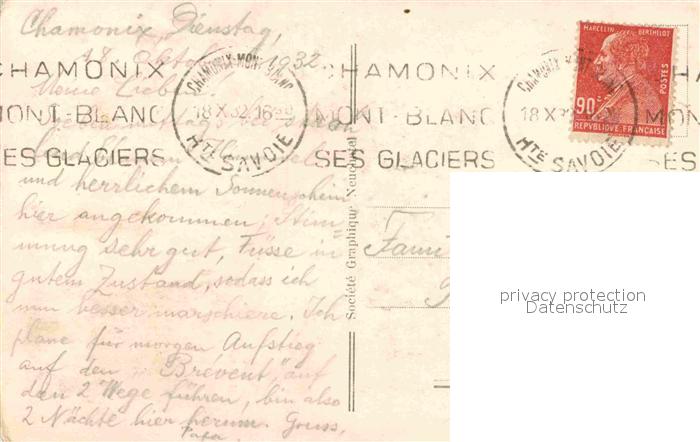 Chamonix, Dienstag,
18. Oktob. 1932
Meine Lieben
und herrlichem Sonnenschein
hier angekommen; Stim-
mung sehr gut, Füsse in
gutem Zustand, sodass ich
nun besser marschiere. Ich
plane für morgen Aufstieg
auf den "Brévent", auf
den 2 Wege führen, bin also
2 Nächte hier herum. Gruss,
Papa.
CHAMONIX
MONT-BLANC
SES GLACIERS
CHAMONIX-MONT-BLANC
18 X 32 16
HTE SAVOIE
CHAMONIX
MONT-BLANC
SES GLACIERS
CHAMONIX-MONT-BLANC
18 X 32
HTE SAVOIE
MON
SES
MARCELIN BERTHELOT
POSTES
90 c
REPVBLIQUE FRANÇAISE
Société Graphique Neuchâtel
Fami
privacy protection
Datenschutz